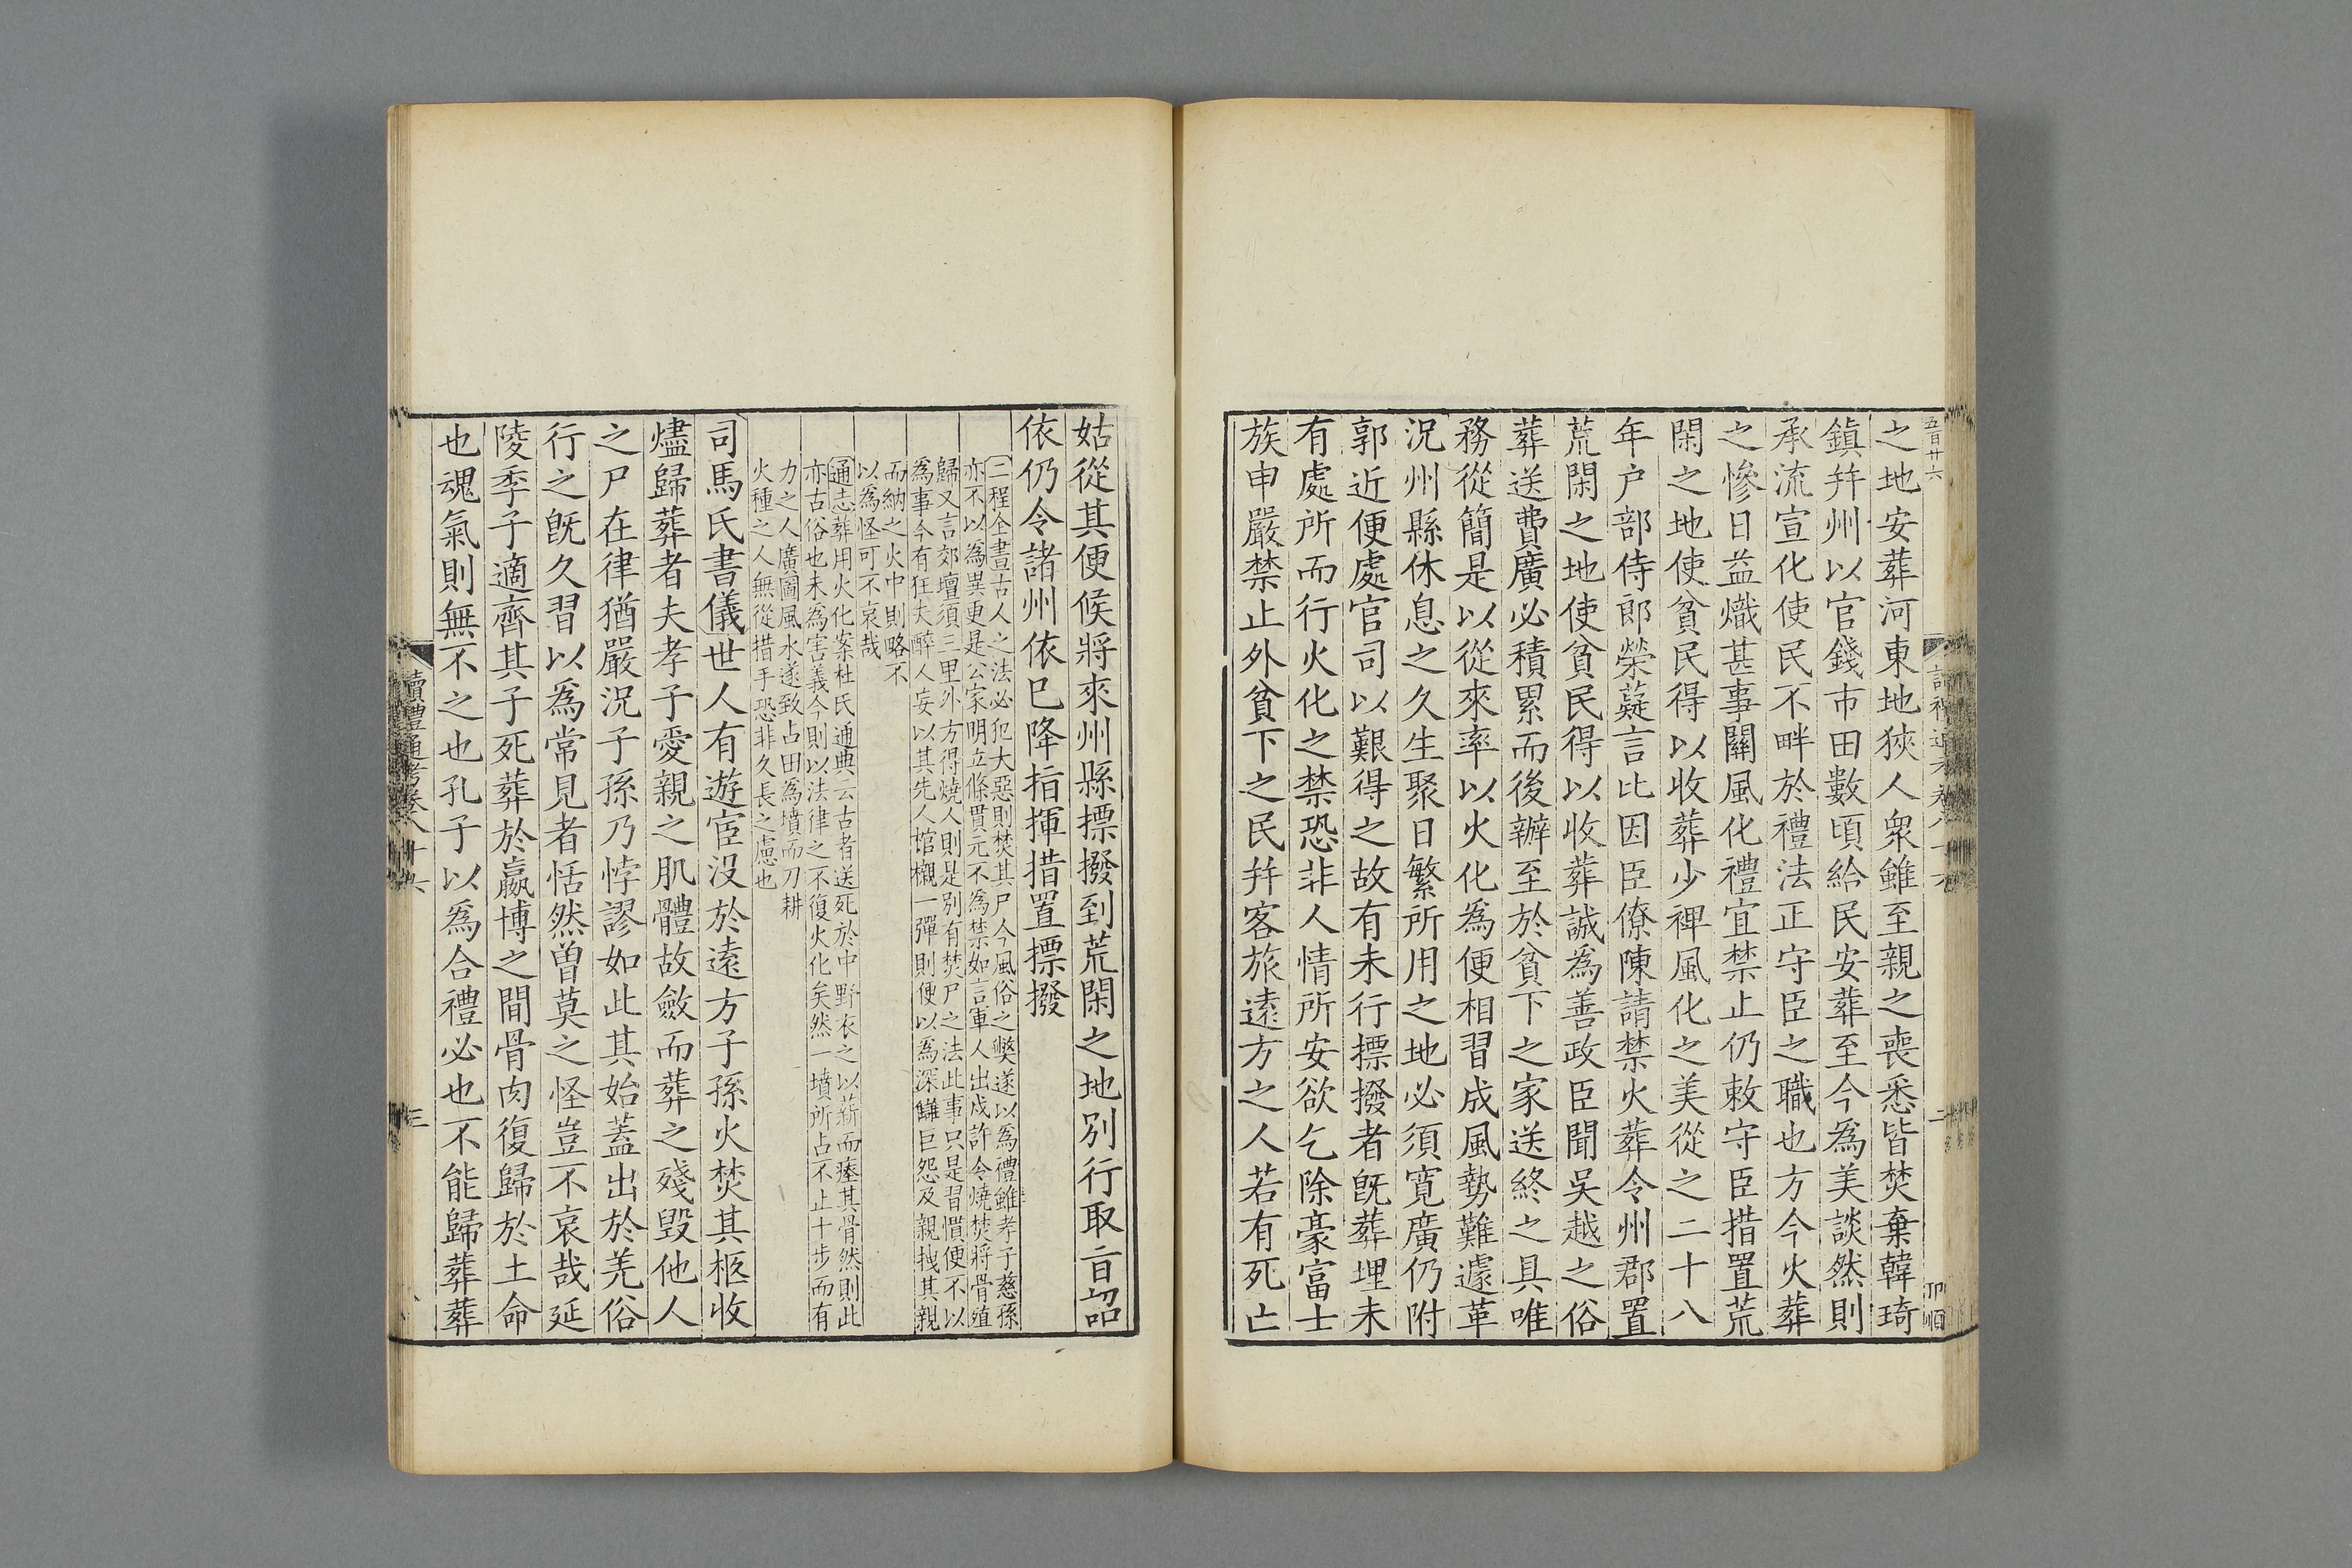 五百廿六
之地安葬河東地狹人衆雖至親之喪悉皆焚棄韓琦
鎮幷州以官錢市田數頃給民安葬至今爲美談然則
承流宣化使民不畔於禮法正守臣之職也方今火葬
之慘日益熾甚事關風化禮宜禁止仍敕守臣措置荒
閑之地使貧民得以收葬少裨風化之美從之二十八
年户部侍郎榮薿言比因臣僚陳請禁火葬令州郡置
荒閑之地使貧民得以收葬誠爲善政臣聞吳越之俗
葬送費廣必積累而後辦至於貧下之家送終之具唯
務從簡是以從來率以火化爲便相習成風勢難遽革
況州縣休息之久生聚日繁所用之地必須寛廣仍附
郭近便處官司以艱得之故有未行摽撥者旣葬埋未
有處所而行火化之禁恐非人情所安欲乞除豪富士
族申嚴禁止外貧下之民幷客旅遠方之人若有死亡
姑從其便候將來州縣摽撥到荒閑之地別行取旨詔
依仍令諸州依已降指揮措置摽撥
二程全書古人之法必犯大惡則焚其尸今風俗之獘遂以爲禮雖孝子慈孫
亦不以爲異更是公家明立條貫元不爲禁如言軍人出戍許令燒焚將骨殖
歸又言郊壇須三里外方得燒人則是別有焚尸之法此事只是習慣便不以
爲事今有狂夫醉人妄以其先人棺櫬一彈則便以爲深讎巨怨及親拽其親
而納之火中則略不
以爲怪可不哀哉
通志葬用火化案杜氏通典云古者送死於中野衣之以薪而瘞其骨然則此
亦古俗也未爲害義今則以法律之不復火化矣然一墳所占不止十步而有
力之人廣圖風水遂致占田爲墳而刀耕
火種之人無從措手恐非久長之慮也
司馬氏書儀世人有遊宦没於遠方子孫火焚其柩收
燼歸葬者夫孝子愛親之肌體故斂而葬之殘毀他人
之尸在律猶嚴況子孫乃悖謬如此其始蓋出於羌俗
行之旣久習以爲常見者恬然曽莫之怪豈不哀哉延
陵季子適齊其子死葬於嬴博之間骨肉復歸於土命
也魂氣則無不之也孔子以爲合禮必也不能歸葬葬
讀禮通考卷八十六
三